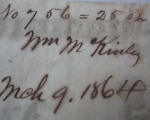 No 756 = 25
Wm McKinley
Mch 9. 1864